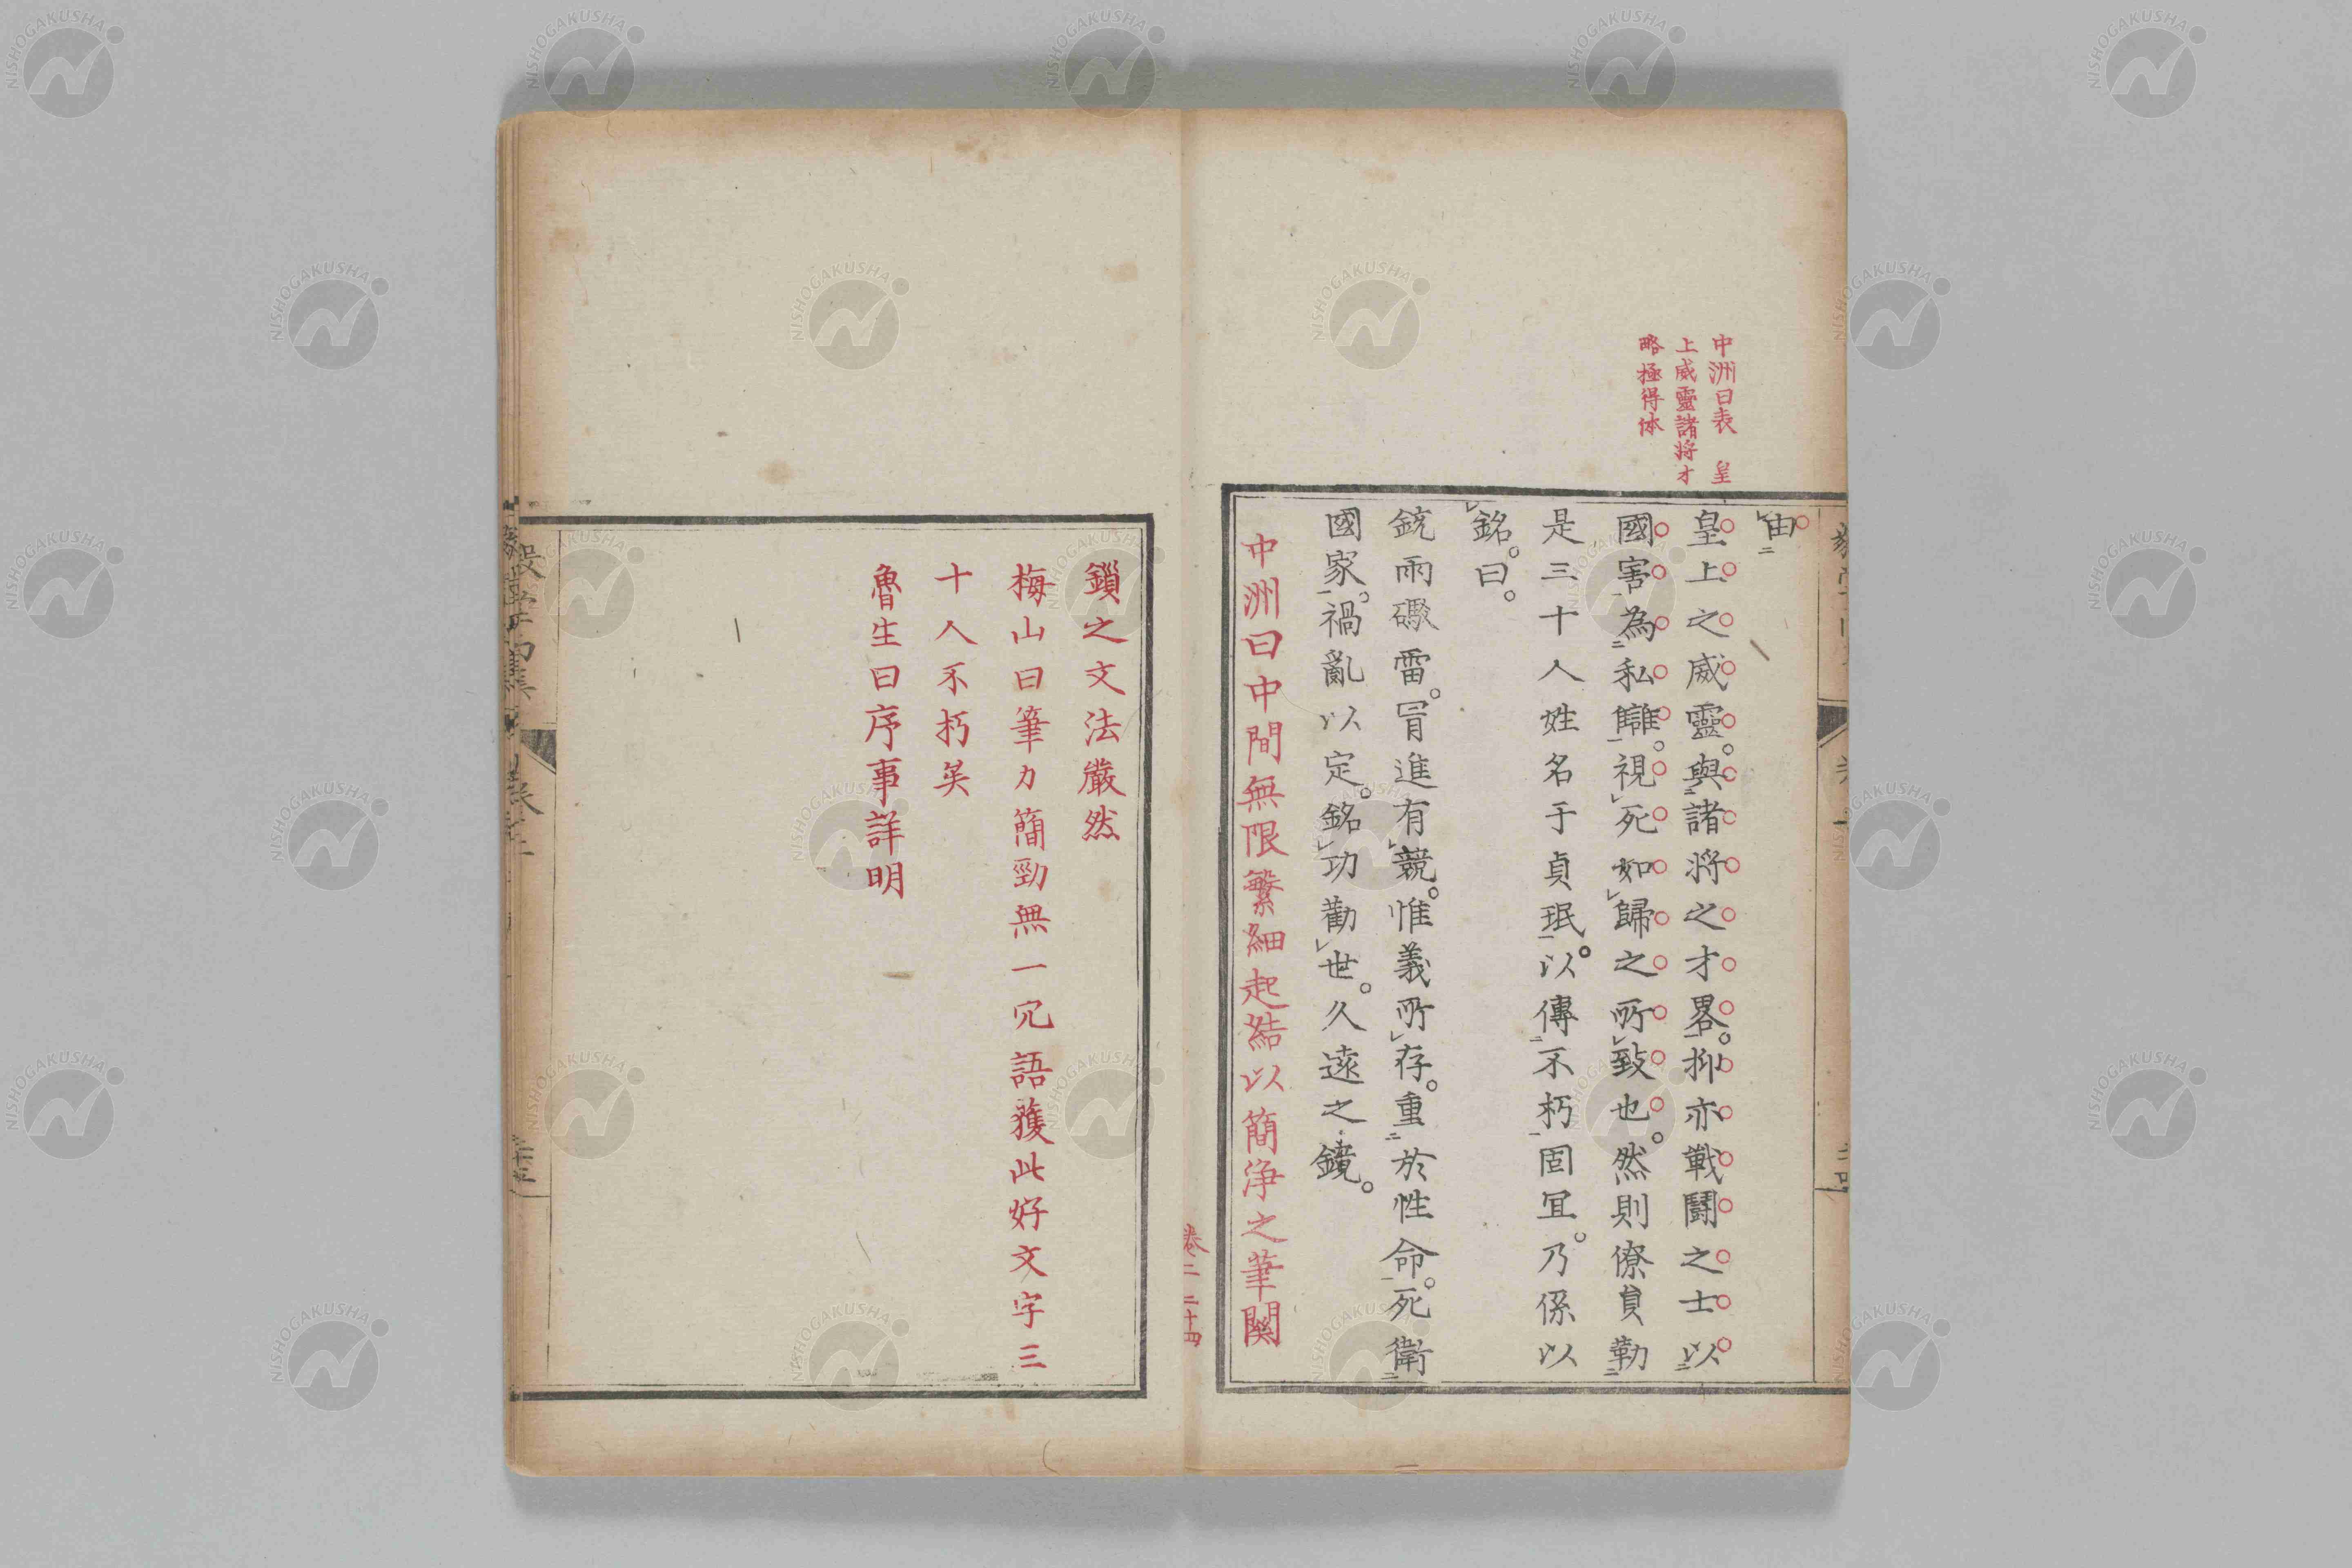 中洲曰表　皇
上威靈諸将才
略極得体
由
皇上之威靈。與諸將之才畧。抑亦戰鬪之士以
國害為私讎。視死如歸之所致也。然則僚員勒
是三十人姓名于貞珉。以傳不朽固宜。乃係以
銘。曰。
銃雨礮雷。冐進有競。惟義所存。重於性命。死衛
國家。禍亂以定。銘功勸世。久遠之鏡。
中洲曰中間無限繁細起結以簡浄之筆関
卷二 二十四
鎖之文法嚴然
梅山曰筆力簡勁無一冗語獲此好文字三
十人不朽矣
魯生曰序事詳明